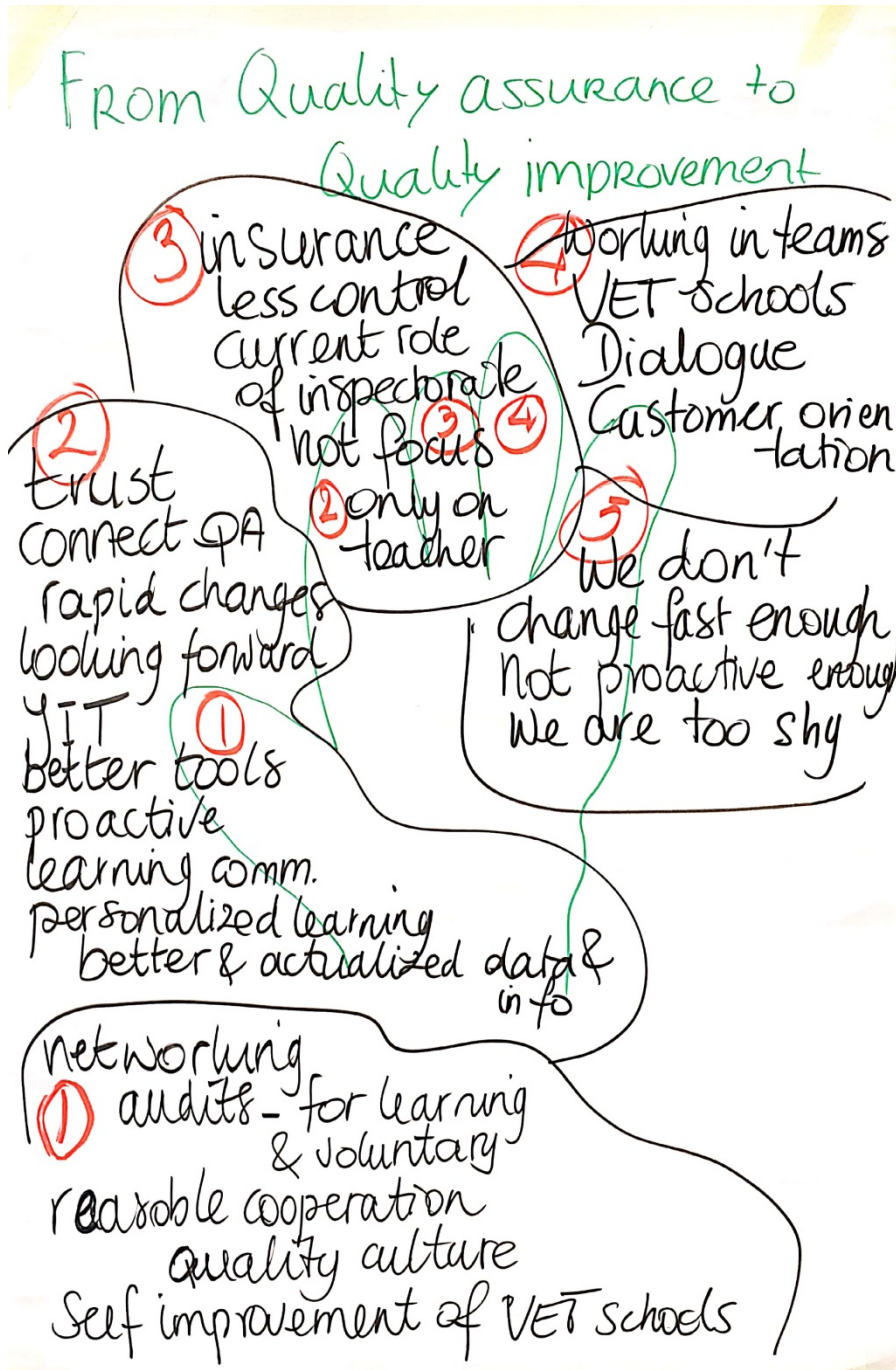 From Quality assurance to
Quality improvement
3 insurance
less control
current role
of inspectorate
not focus
only on
teacher
3
4
2
4 Working in teams
VET schools
Dialogue
Customer orien
-tation
2
trust
connect QA
rapid changes
looking forward
JIT
better tools
proactive
learning comm.
personalized learning
better & actualized data &
info
1
5
We don't
change fast enough
Not proactive enough
We are too shy
networking
1 audits - for learning
& voluntary
reasoble cooperation
quality culture
Self improvement of VET schools